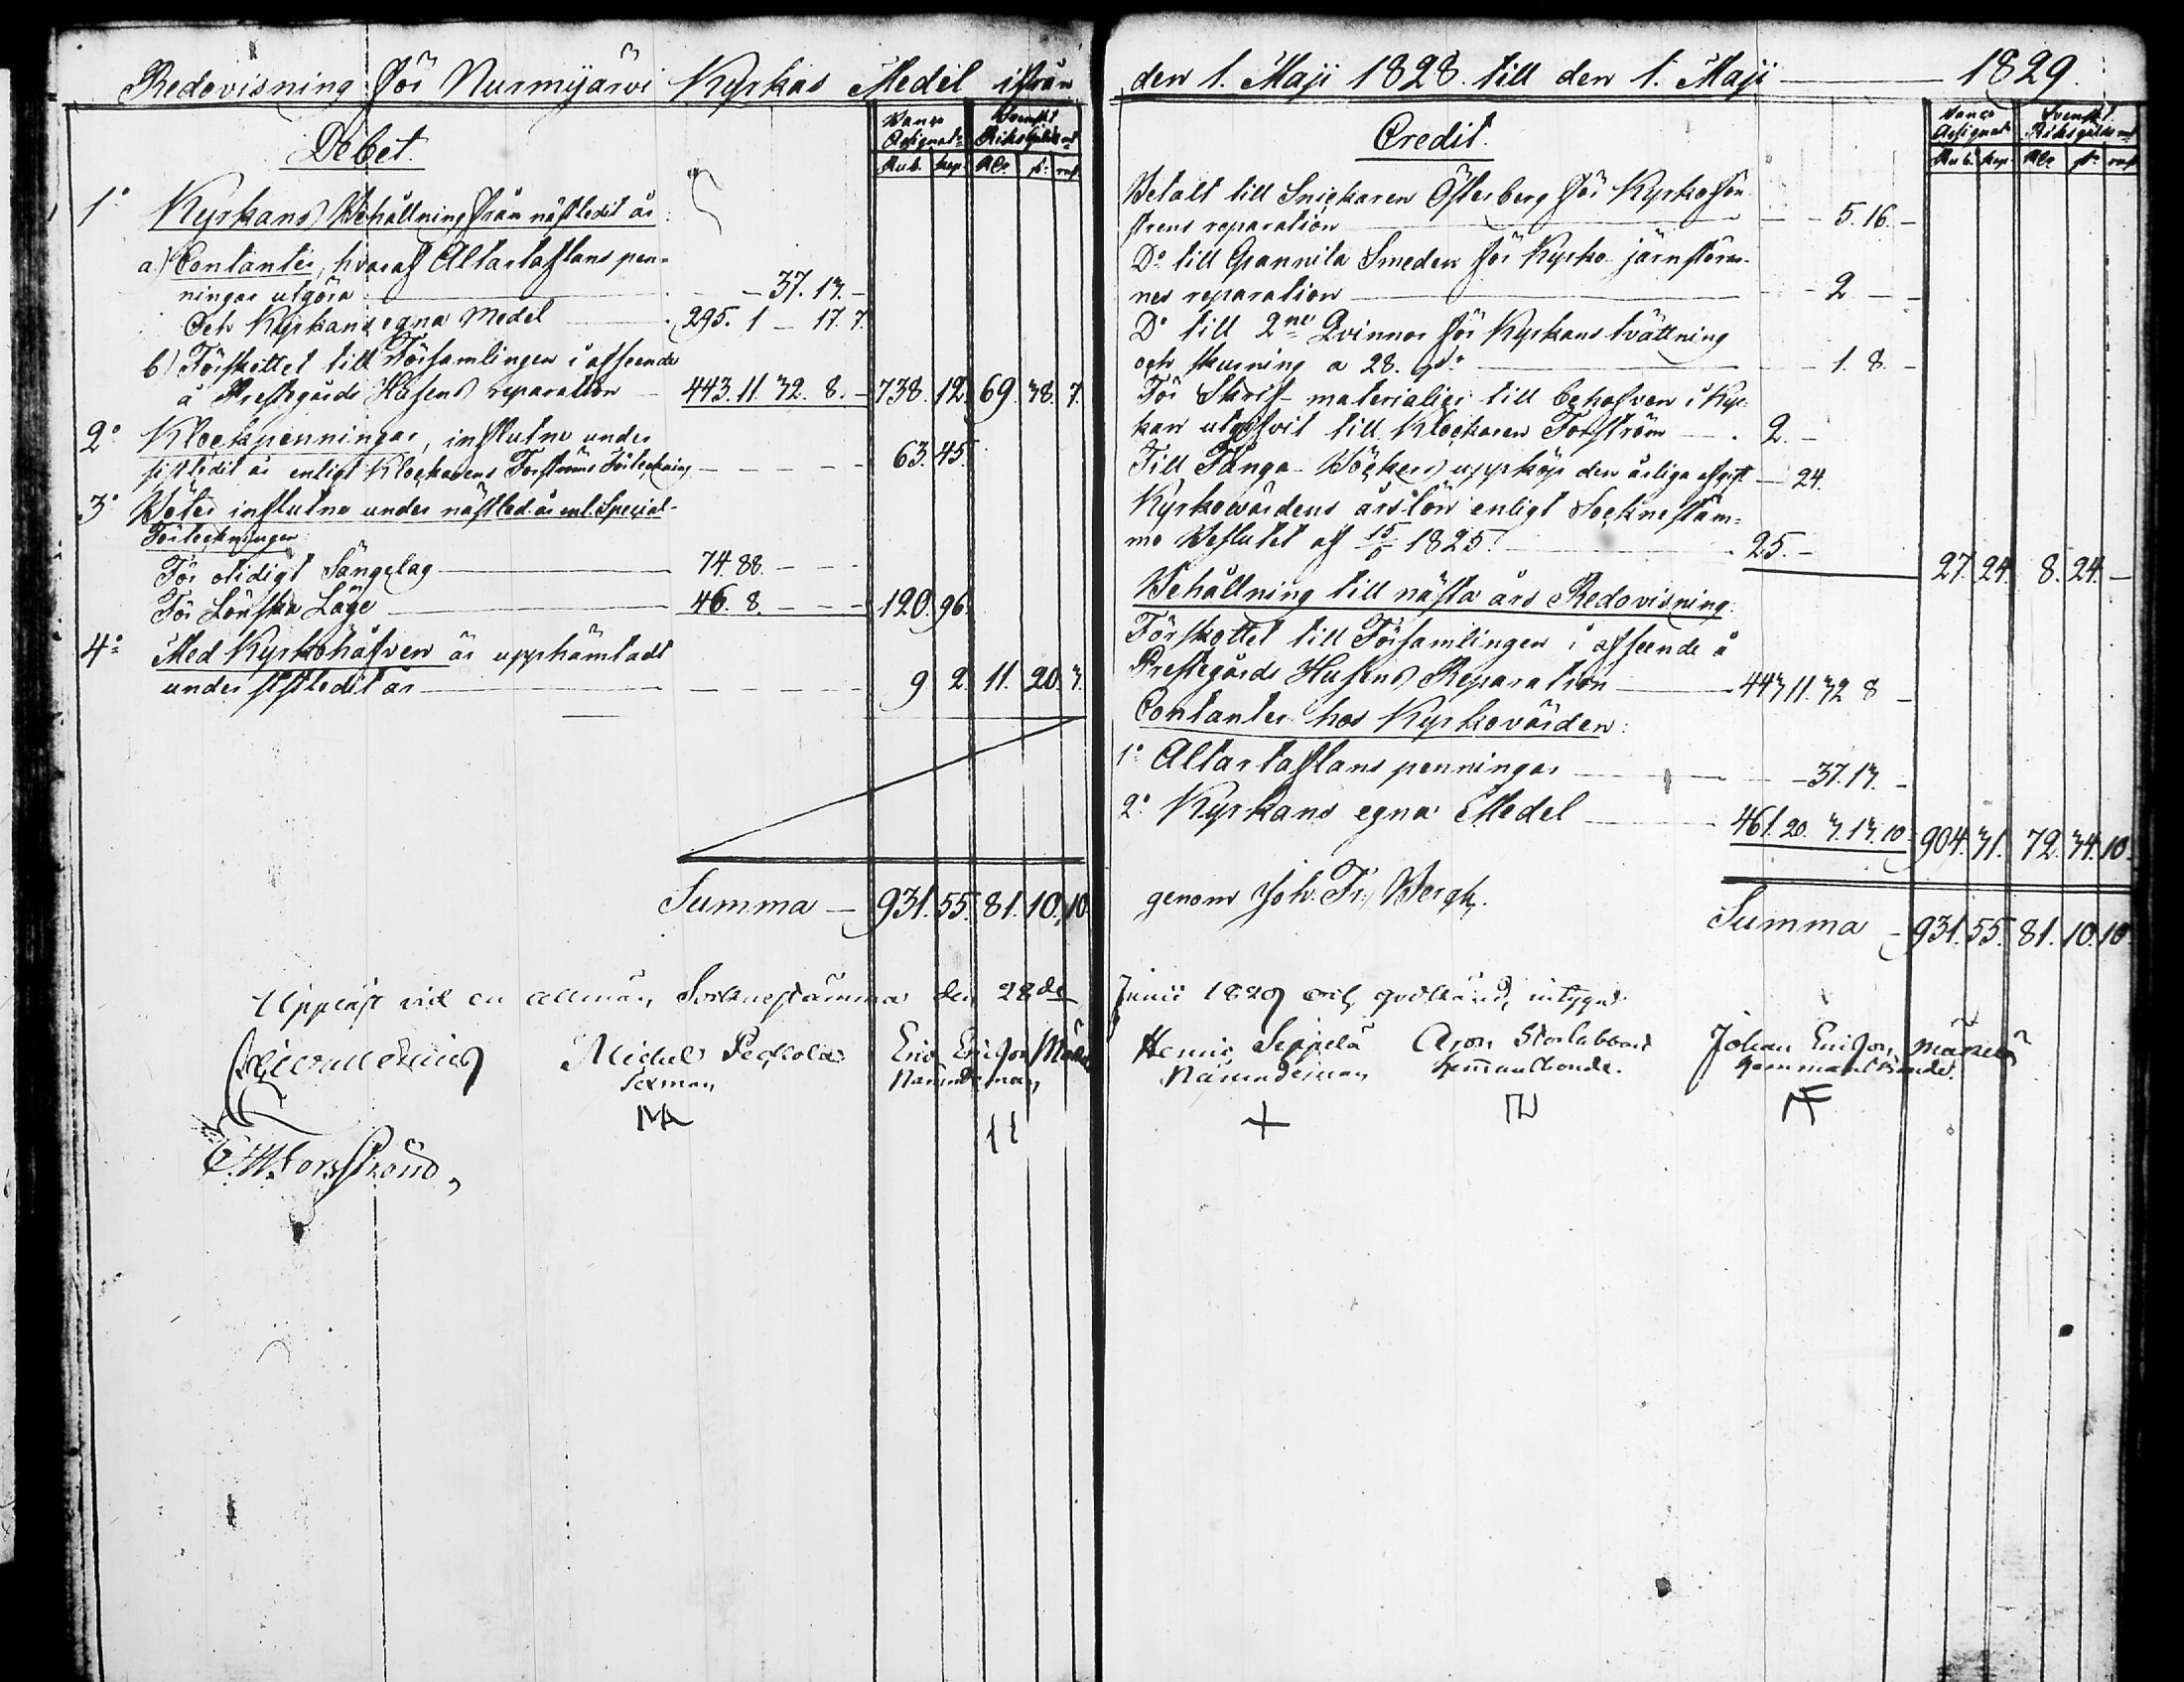 Redovisning för Nurmijärvi Kyrkas Medel ifrån
Debet.
Banco Assignat:r
Svenskt Riksgälds mt
Rub. kop. Rdr s. rst
1o Kyrkans Behållning från nästledit år:
a) Contanter, hvaraf Altartaflans pen-
ningar utgöra — 37. 13. —
Och Kyrkans egna Medel — 295. 1 — 17. 7.
b) Förskottet till Församlingen i afseende
å Prestegårds Husens reparation — 443. 11. 32. 8. — 738. 12. 69. 38. 7.
2o Klockpenningar, influtne under
sistledit år enligt Klockarens Forströms Förteckning — 63. 45.
3o Böter influtne under nästled. år enl. Special-
Förteckningen
För otidigt Sängelag — 74. 88. —
För Lönska Läge — 46. 8. — 120. 96.
4o Med Kyrkohåfven är upphämtadt
under sistledit år — 9 2. 11. 20. 3.
Summa — 931. 55. 81. 10. 10.
den 1. Maji 1828. till den 1. Maji — 1829.
Credit.
Banco Assignat:r
Svenskt Riksgälds mt
Rub. kop. Rdr s. rst
Betalt till Snickaren Österberg för Kyrkofön-
strens reparation — 5. 16. —
Do till Smeden för Kyrko järnstörar-
nes reparation — 2 — —
Do till 2ne Qvinnor för Kyrkans tvättning
och skurning a 28. — 1. 8. —
För Skrif-materialier till behofven i Kyr-
kan utgifvit till Klockaren Forström — 2. —
Till Fånga-Böckers uppköp den årliga afgift — 24.
Kyrkovärdens årslön enligt Socknestäm-
mo Beslutet af 1825. — 25. — 27. 24. 8. 24. —
Behållning till nästa års Redovisning.
Förskottet till Församlingen i afseende å
Prestegårds Husens Reparation — 443 11. 32 8 —
Contanter hos Kyrkovärden:
1o Altartaflans penningar — 37. 13. —
2o Kyrkans egna Medel — 461. 20. 3. 13. 10. 904. 31. 72. 34. 10.
genom Joh. Fr. Bergh.
Summa — 931. 55. 81. 10. 10.
Uppläst vid en allmän Socknestämma den 28de Junii 1829 och godkänd, intygar
Michel Sexman
Eric Ericsson Nämndeman
Henric Seppelä Nämndeman
Aron Hemmansbonde.
Johan Ericsson Hemmansbonde.
Forsström